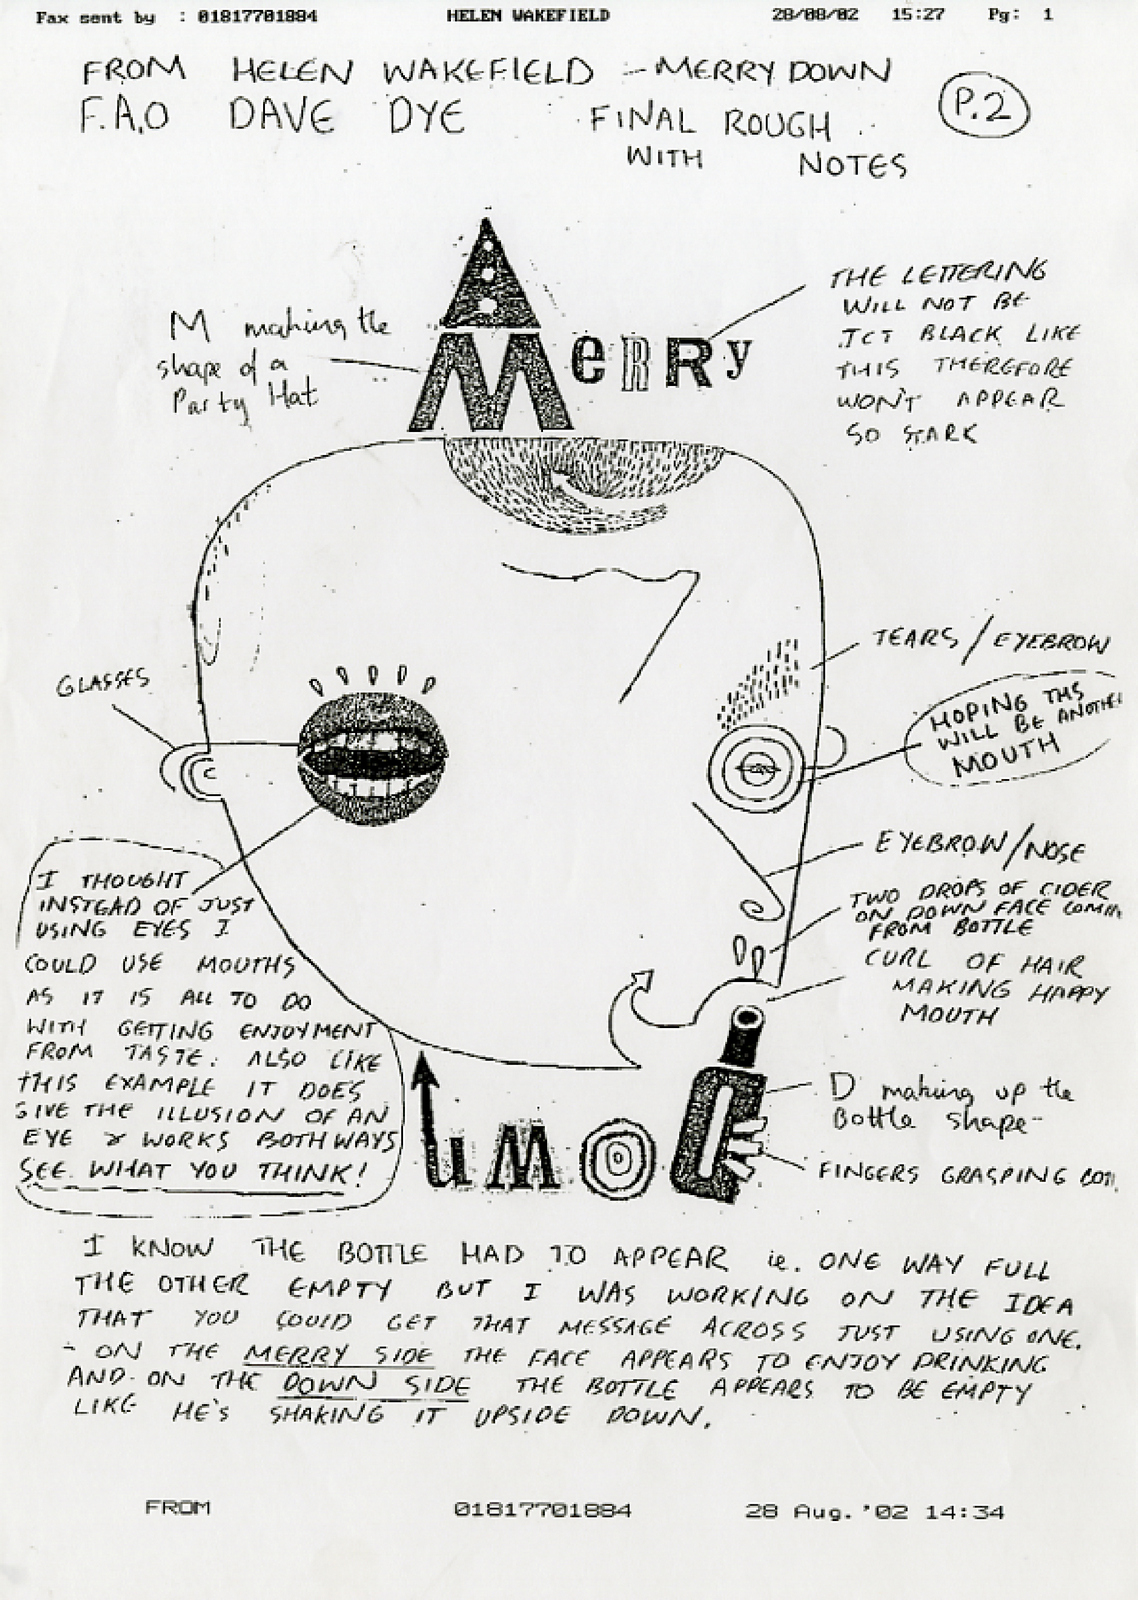 Fax sent by : 01817701884 HELEN WAKEFIELD 28/08/02 15:27 Pg: 1
FROM HELEN WAKEFIELD - MERRY DOWN
F.A.O DAVE DYE FINAL ROUGH
WITH NOTES
P.2
M making the
shape of a
Party Hat
MeRRy
THE LETTERING
WILL NOT BE
JET BLACK LIKE
THIS THEREFORE
WON'T APPEAR
SO STARK
TEARS / EYEBROW
GLASSES
HOPING THS
WILL BE ANOTHER
MOUTH
EYEBROW/NOSE
TWO DROPS OF CIDER
ON DOWN FACE COMIN
FROM BOTTLE
CURL OF HAIR
MAKING HAPPY
MOUTH
I THOUGHT
INSTEAD OF JUST
USING EYES I
COULD USE MOUTHS
AS IT IS ALL TO DO
WITH GETTING ENJOYMENT
FROM TASTE. ALSO LIKE
THIS EXAMPLE IT DOES
GIVE THE ILLUSION OF AN
EYE & WORKS BOTH WAYS
SEE WHAT YOU THINK!
D making up the
Bottle shape-
FINGERS GRASPING BOTT
DOWN
I KNOW THE BOTTLE HAD TO APPEAR ie. ONE WAY FULL
THE OTHER EMPTY BUT I WAS WORKING ON THE IDEA
THAT YOU COULD GET THAT MESSAGE ACROSS JUST USING ONE.
- ON THE MERRY SIDE THE FACE APPEARS TO ENJOY DRINKING
AND ON THE DOWN SIDE THE BOTTLE APPEARS TO BE EMPTY
LIKE HE'S SHAKING IT UPSIDE DOWN.
FROM 01817701884 28 Aug. '02 14:34